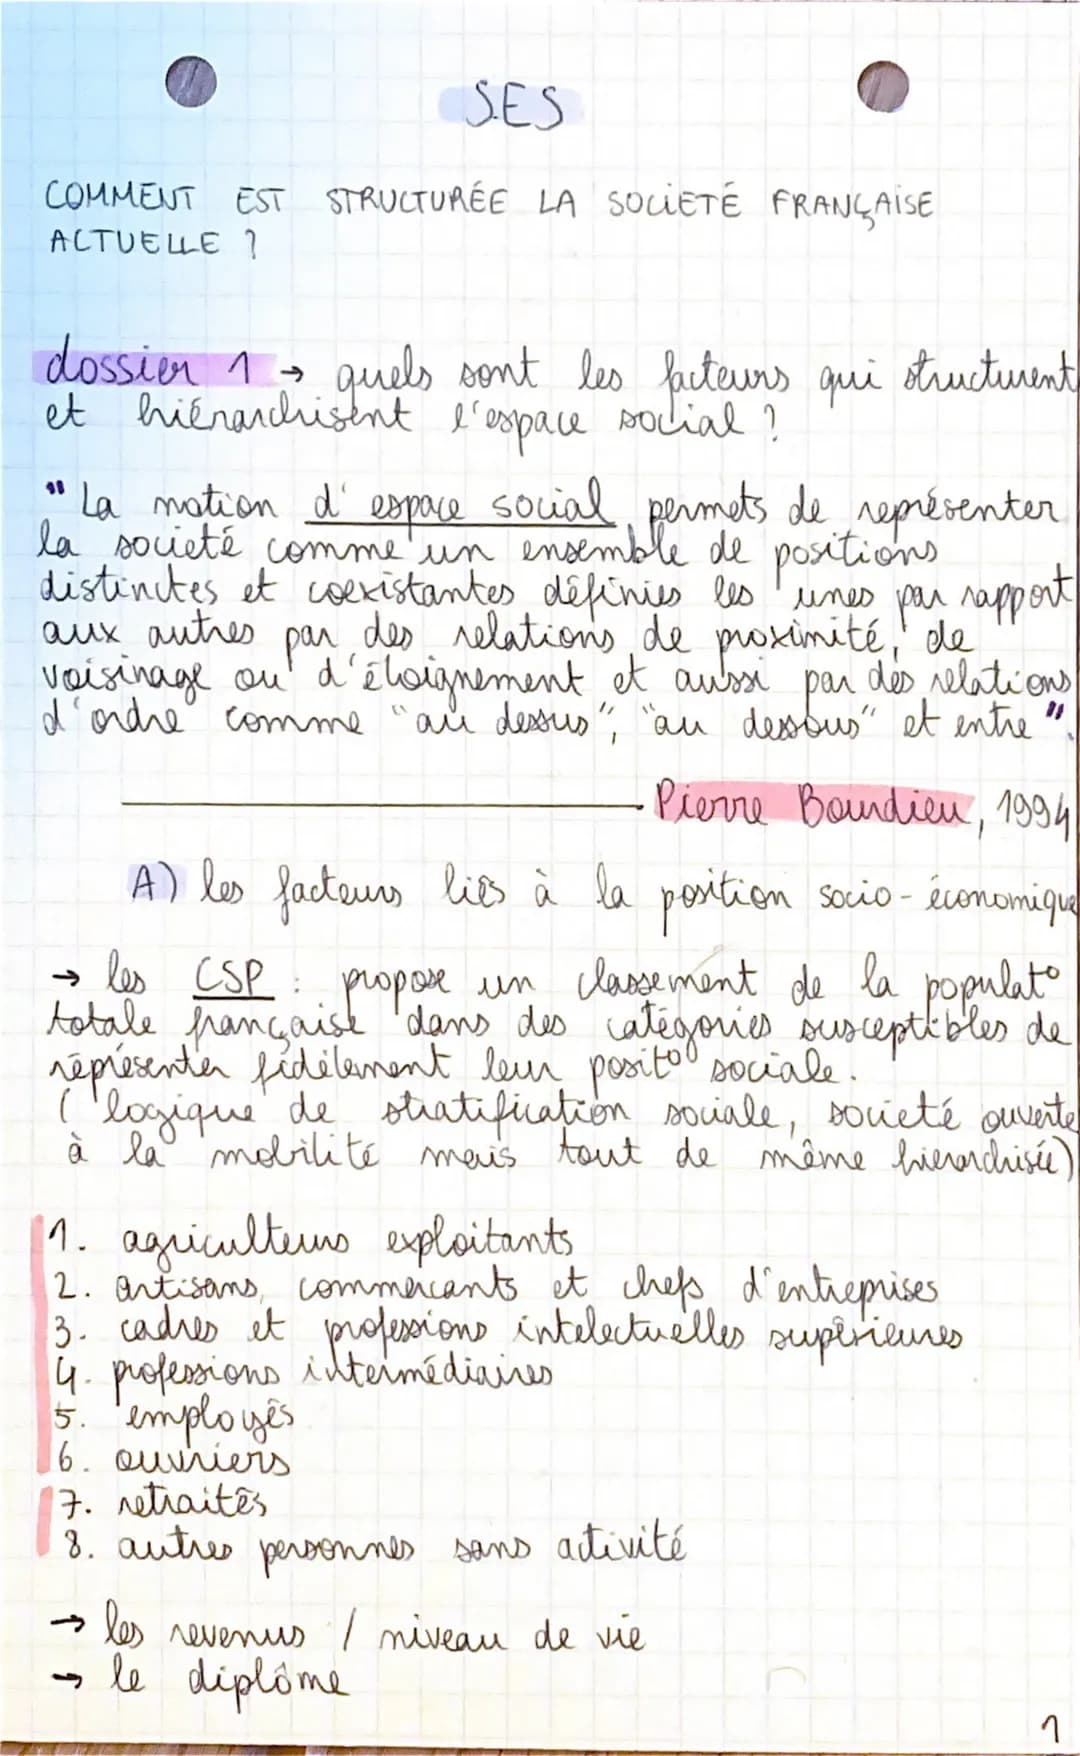 S.E.S
COMMENT EST STRUCTURÉE LA SOCIETÉ FRANÇAISE
ACTUELLE ?
dossier 1 → quels sont les facteurs qui structurent
et hiérarchisent l'espace social ?
" La notion d'espace social permets de représenter
la societé comme un ensemble de positions
distinctes et coexistantes définies les unes par rapport
aux autres par des relations de proximité, de
voisinage ou d'éloignement et aussi par des relations
d'ordre comme "au dessus", "au dessous" et entre ".
Pierre Bourdieu, 1994
A) les facteurs liés à la position socio-économique
→ les CSP : propose un classement de la populat°
totale française dans des catégories susceptibles de
réprésenter fidèlement leur posit° sociale.
( logique de stratification sociale, societé ouverte
à la mobilité mais tout de même hierarchisée)
1. agriculteurs exploitants
2. artisans, commercants et chefs d'entreprises
3. cadres et professions intelectuelles supérieures
4. professions intermédiaires
5. employés
6. ouvriers
7. retraités
8. autres personnes sans activité
→ les revenus / niveau de vie
→ le diplôme
1